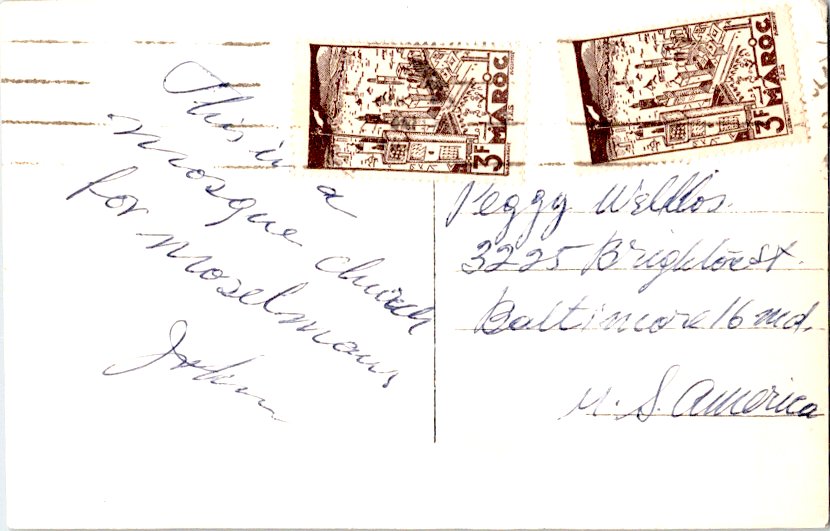 This is a
mosque church
for moselmans
John
MAROC
3F
MAROC
3F
Peggy
3225 Brighton St.
Baltimore 16 md.
U. S. America